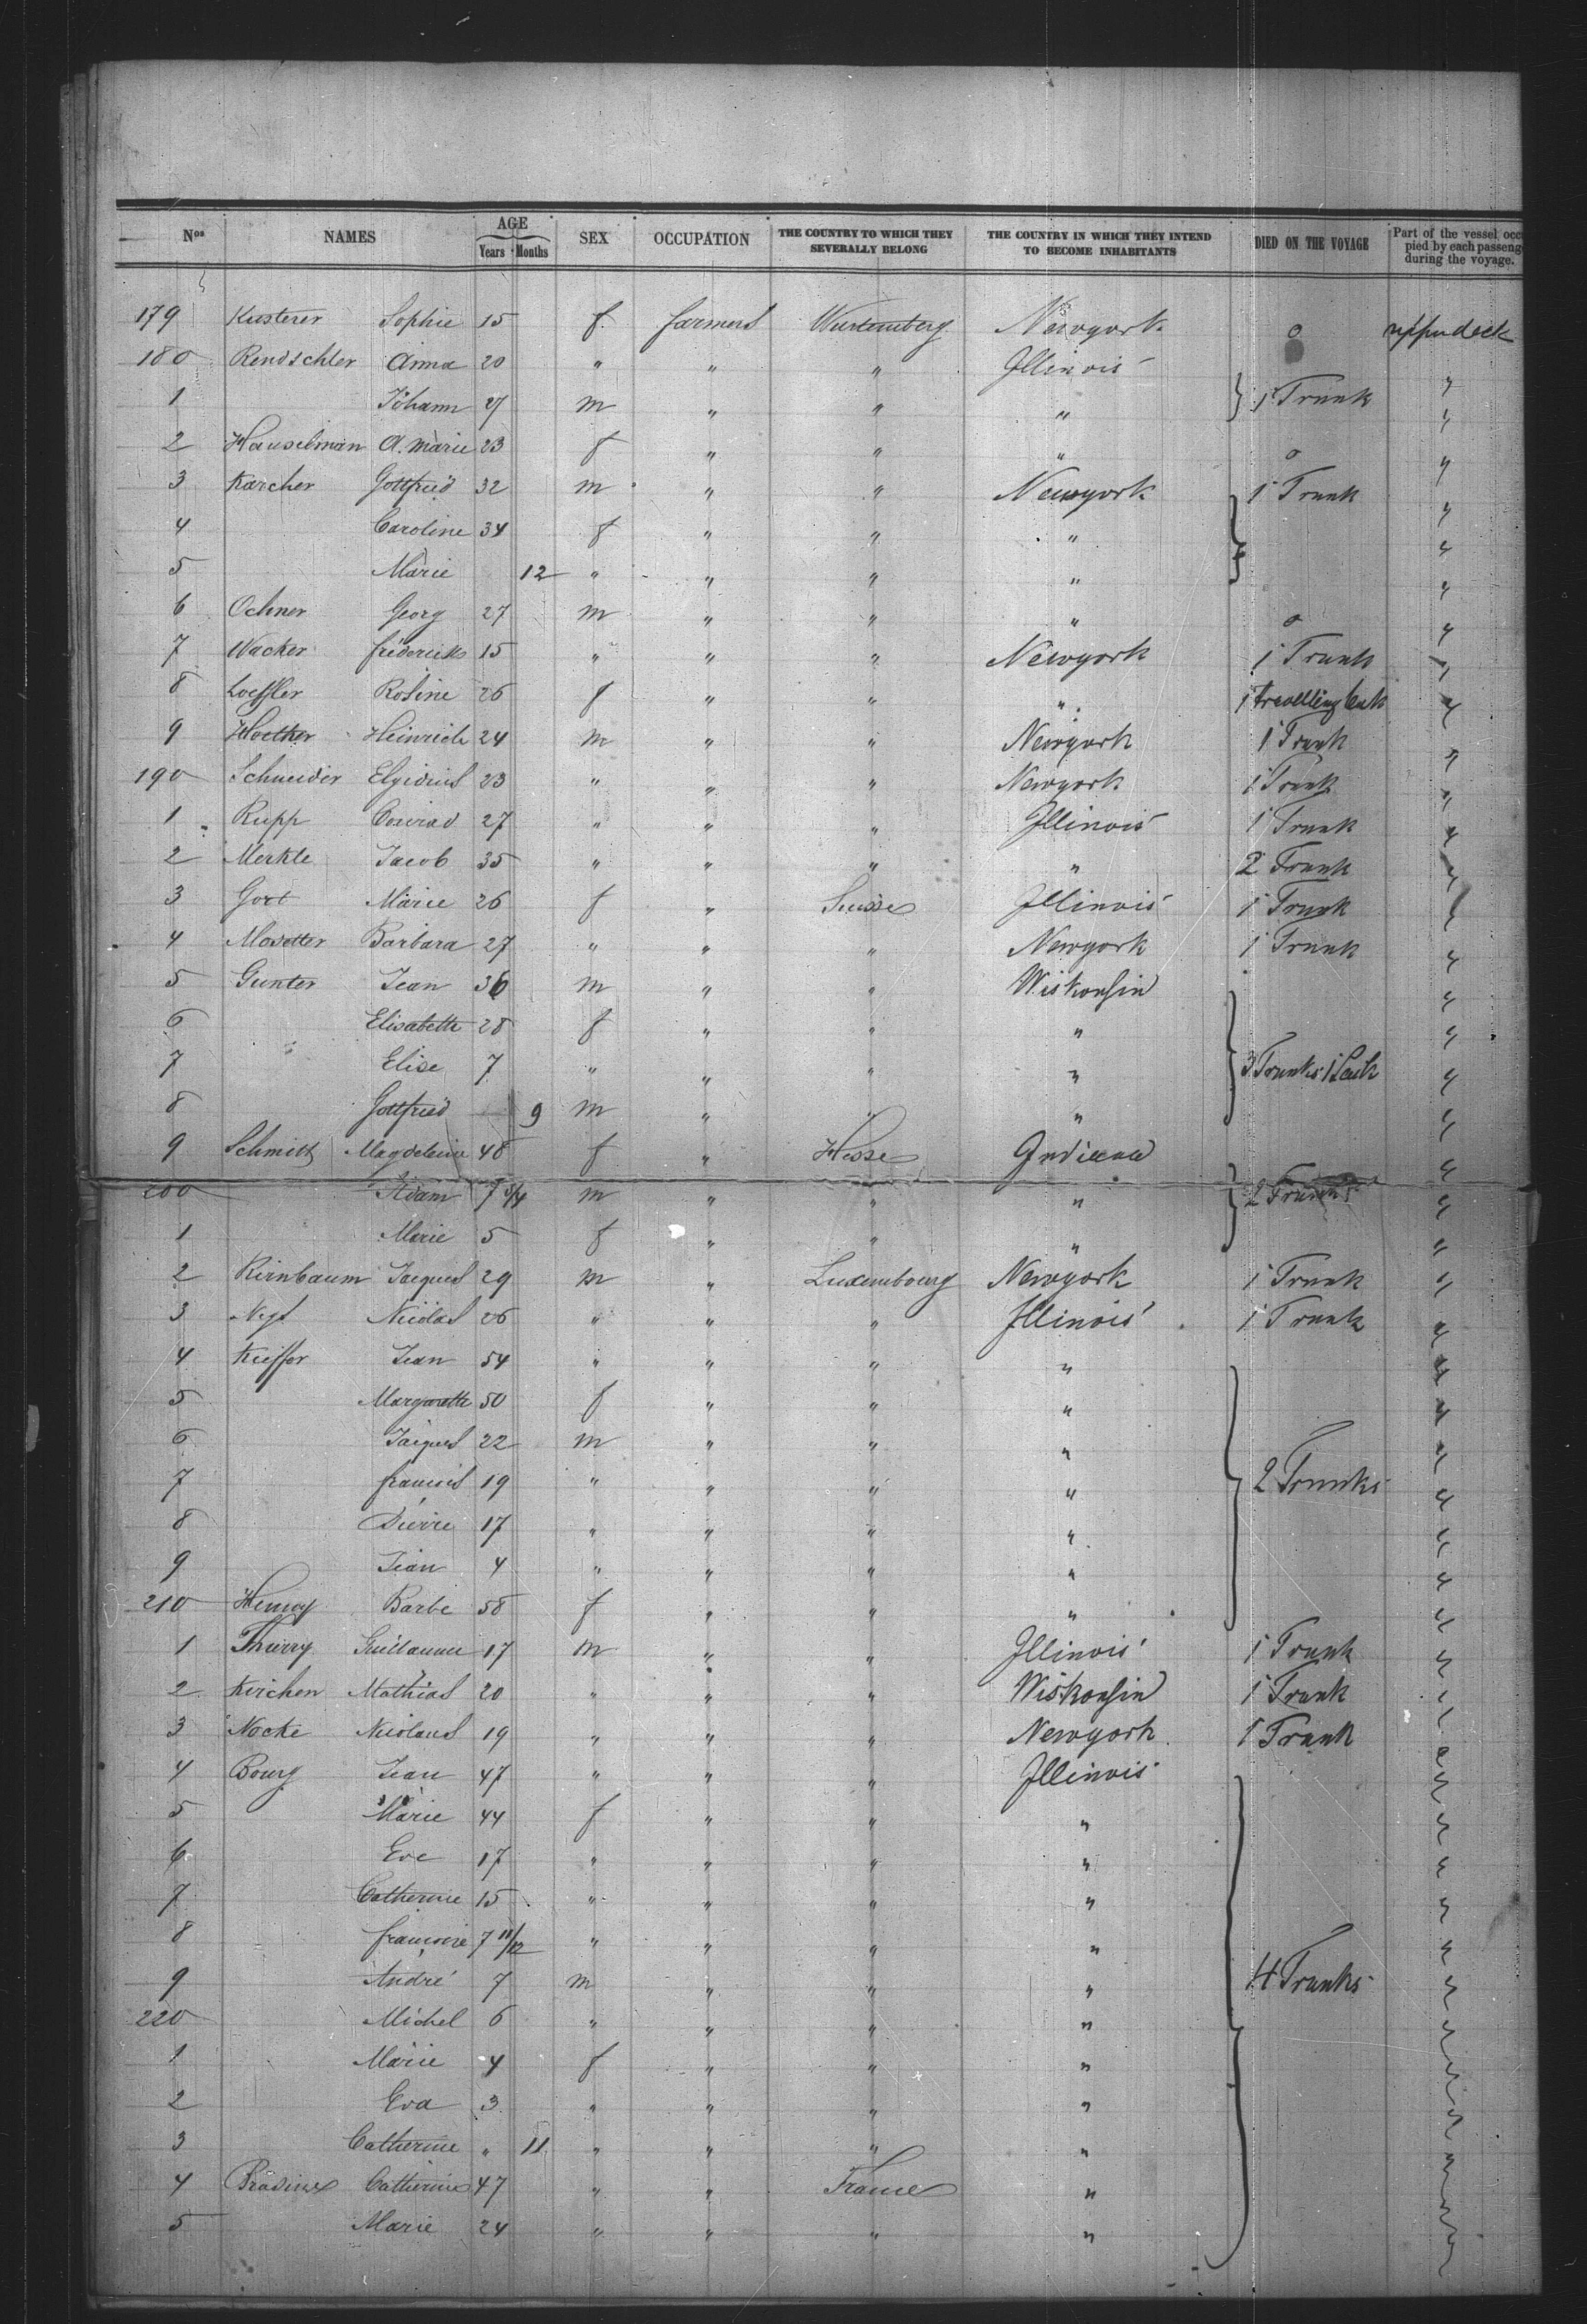 Nos NAMES AGE Years Months SEX OCCUPATION THE COUNTRY TO WHICH THEY SEVERALLY BELONG THE COUNTRY IN WHICH THEY INTEND TO BECOME INHABITANTS DIED ON THE VOYAGE Part of the vessel occu pied by each passeng during the voyage.
179 Kusterer Sophie 15 f. farmers Wurtemberg Newyork o upperdeck
180 Rendschler Anna 20 " " " Illinois "
1 Johann 27 m " " " 1 Trunk "
2 Hauselman A. Marie 23 f " " " o "
3 Karcher Gottfried 32 m " " Newyork 1 Trunk "
4 Caroline 34 f " " " "
5 Marie 12 " " " " "
6 Ochner Georg 27 m " " " o "
7 Wacker frederick 15 " " " Newyork 1 Trunk "
8 Loessler Rosine 26 f " " " 1 "
9 Hoether Heinrich 24 m " " Newyork 1 Trunk "
190 Schneider Elgidius 23 " " " Newyork 1 Trunk "
1 Rupp Conrad 27 " " " Illinois 1 Trunk "
2 Merkle Jacob 35 " " " " 2 Trunk "
3 Gort Marie 26 f " Suisse Illinois 1 Trunk "
4 Mosetter Barbara 27 " " " Newyork 1 Trunk "
5 Gunter Jean 36 m " " Wiskonsin "
6 Elisabeth 28 f " " " "
7 Elise 7 " " " " 3 Trunks 1 Sack "
8 Gottfried 9 m " " " "
9 Schmitt Magdeleine 48 f " Hesse Indiana "
200 Adam 7 m " " " 2 Trunks "
1 Marie 5 f " " " "
2 Kirnbaum Jacques 29 m " Luxembourg Newyork 1 Trunk "
3 Nicolas 26 " " " Illinois 1 Trunk "
4 Kieffer Jean 54 " " " " "
5 Margarethe 50 f " " " "
6 Jacques 22 m " " " "
7 francois 19 " " " " 2 Trunks "
8 Pierre 17 " " " " "
9 Jean 4 " " " " "
210 Hemoy Barbe 58 f " " " "
1 Thierry Guillaume 17 m " " Illinois 1 Trunk "
2 Kirchen Mathias 20 " " " Wiskonsin 1 Trunk "
3 Nocke Nicolaus 19 " " " Newyork 1 Trunk "
4 Bourg Jean 47 " " " Illinois "
5 Marie 44 f " " " "
6 Eve 17 " " " " "
7 Catherine 15 " " " " "
8 francoise 7 11/12 " " " " "
9 André 7 m " " " 4 Trunks "
220 Michel 6 " " " " "
1 Marie 4 f " " " "
2 Eva 3 " " " " "
3 Catherine " 11 " " " " "
4 Catherine 47 " " France " "
5 Marie 24 " " " " "